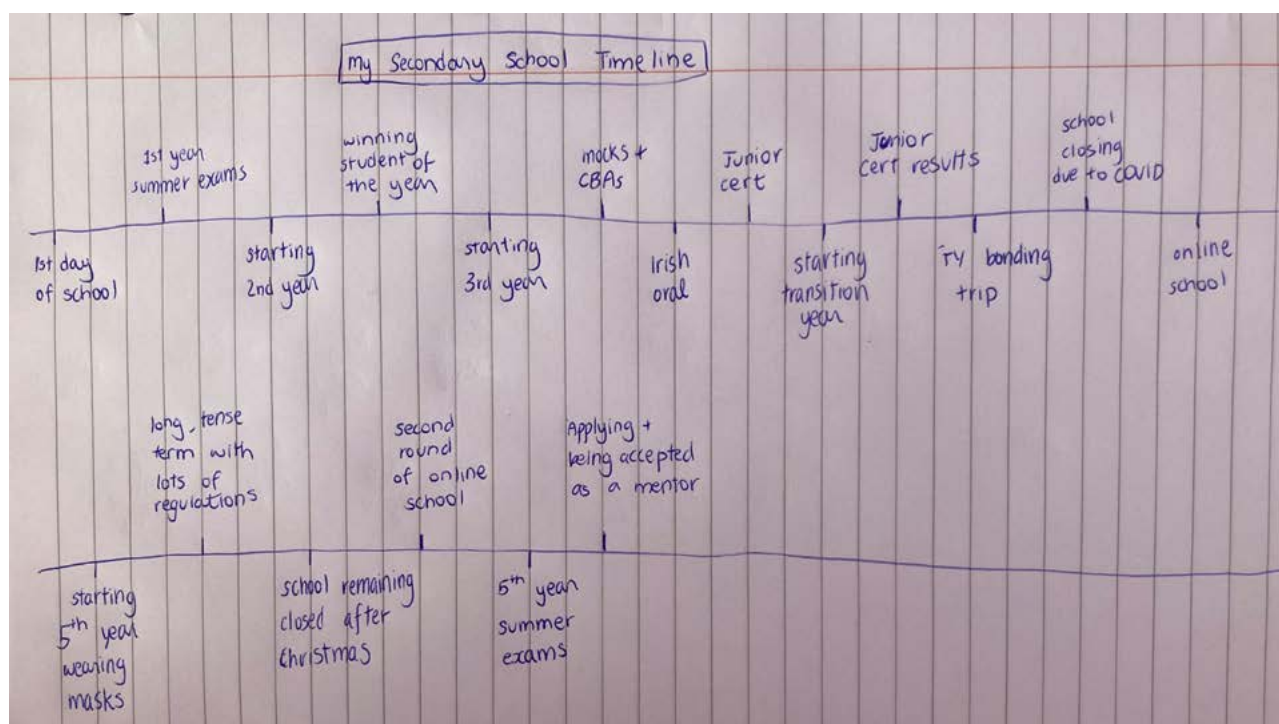 My Secondary School Timeline
1st day
of school
1st year
summer exams
starting
2nd year
winning
student of
the year
starting
3rd year
mocks +
CBAs
Irish
oral
Junior
cert
starting
transition
year
Junior
cert results
TY bonding
trip
school
closing
due to COVID
online
school
starting
5th year
wearing
masks
long, tense
term with
lots of
regulations
school remaining
closed after
Christmas
second
round
of online
school
5th year
summer
exams
Applying +
being accepted
as a mentor